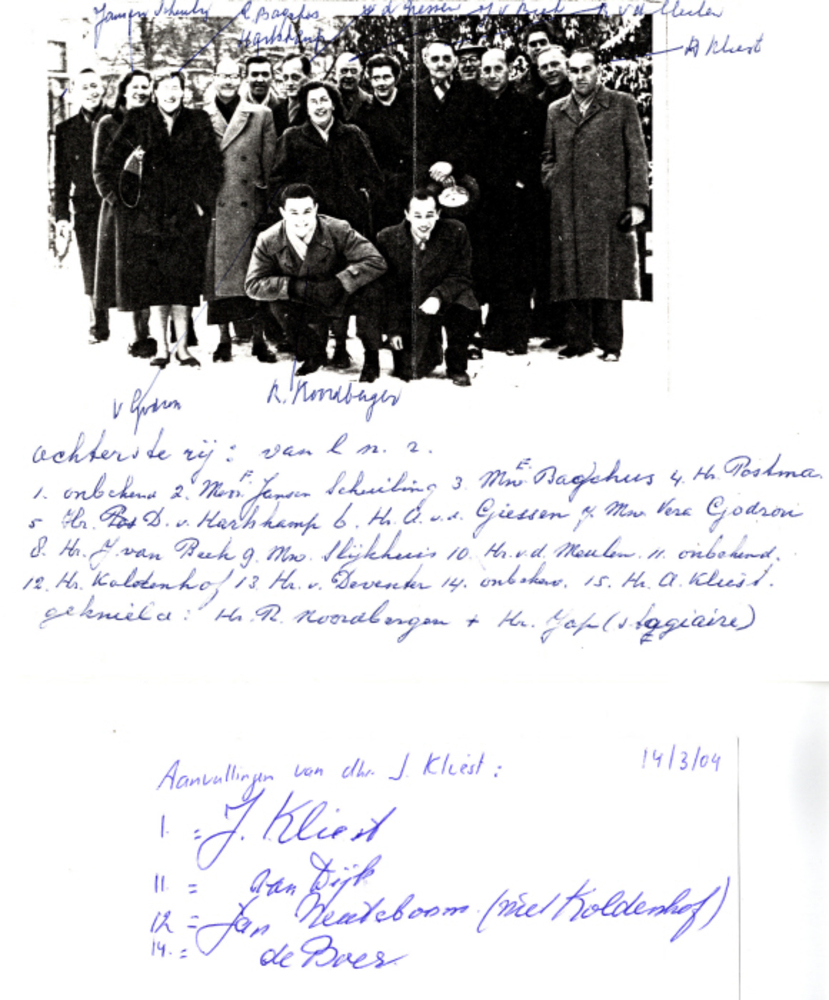 Jansen Scheuling R Bagchus v d Giessen J v Beek v d Meulen
Harskamp
A Kliest
V Godron R. Noordbergen
achterste rij: van l n. r.
1. onbekend 2. Mevr. F. Jansen Scheuling 3. Mw. E. Bagchus 4. Hr. Postma
5 Hr. D. v. Harskamp 6. Hr. A. v.d. Giessen 7. Mw. Vera Godron
8. Hr. J. van Beek 9. Mw. Slijkhuis 10. Hr. v.d. Meulen. 11. onbekend.
12. Hr. Koldenhof 13. Hr. v. Deventer 14. onbeken. 15. Hr. A. Kliest.
geknield: Hr. R. Noordbergen + Hr. Jap (stagiaire)
Aanvullingen van dhr. J. Kliest: 14/3/04
1. = J. Kliest
11 = van Dijk
12 = Jan Neuteboom (niet Koldenhof)
14. = de Boer